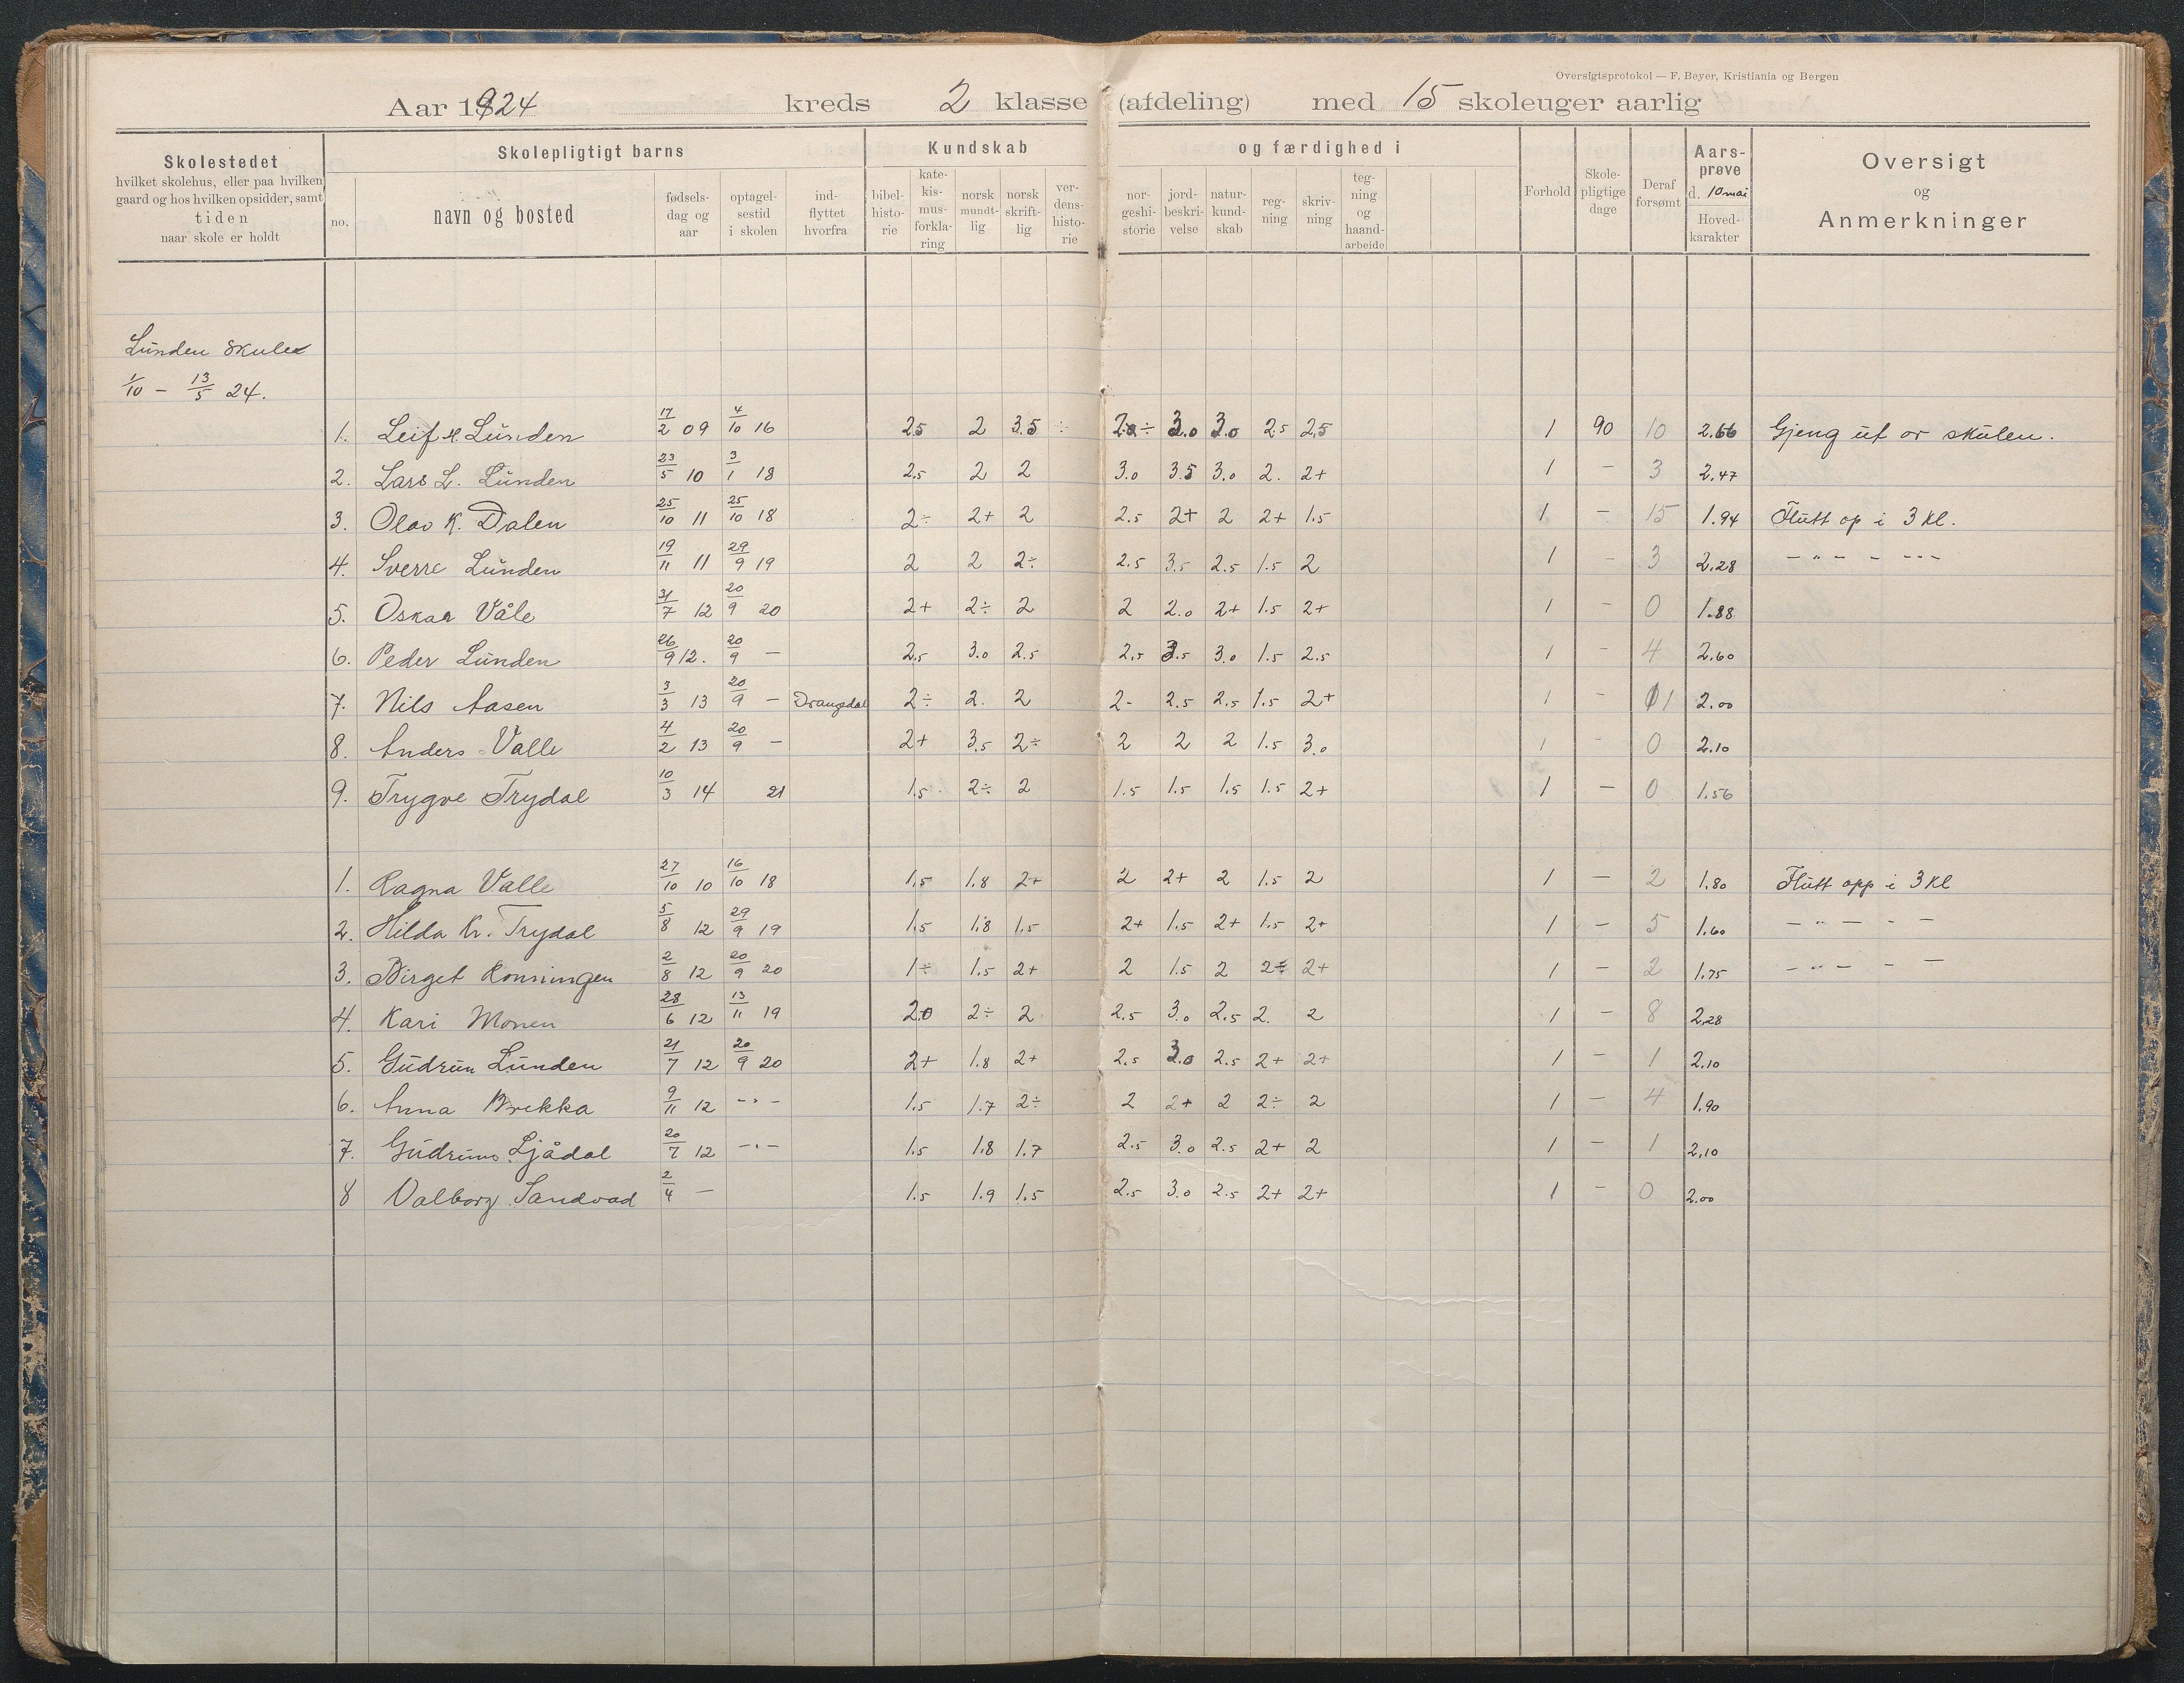 Oversigtsprotokol — F. Beyer, Kristiania og Bergen
Aar 1924 kreds 2 klasse (afdeling) med 15 skoleuger aarlig
Skolestedet
hvilket skolehus, eller paa hvilken
gaard og hos hvilken opsidder, samt
tiden
naar skole er holdt
Skolepligtigt barns
no.
navn og bosted
fødsels-
dag og
aar
optagel-
sestid
i skolen
ind-
flyttet
hvorfra
Kundskab og færdighed i
bibel-
histo-
rie
kate-
kis-
mus-
forkla-
ring
norsk
mundt-
lig
norsk
skrift-
lig
ver-
dens-
histo-
rie
nor-
geshi-
storie
jord-
beskri-
velse
natur-
kund-
skab
reg-
ning
skriv-
ning
teg-
ning
og
haand-
arbeide
Forhold
Skole-
pligtige
dage
Deraf
forsømt
Aars-
prøve
d. 10 mai
Hoved-
karakter
Oversigt
og
Anmerkninger
Lunden skule
1/10 – 13/5 24.
1. Leif H. Lunden 17/2 09 4/10 16 2.5 2 3.5 ÷ 2.0 ÷ 3.0 3.0 2.5 2.5 1 90 10 2.66 Gjeng ut or skulen.
2. Lars L. Lunden 23/5 10 3/1 18 2.5 2 2 3.0 3.5 3.0 2. 2+ 1 – 3 2.47
3. Olav K. Dalen 25/10 11 25/10 18 2÷ 2+ 2 2.5 2+ 2 2+ 1.5 1 – 15 1.94 Flutt op i 3 kl.
4. Sverre Lunden 19/11 11 29/9 19 2 2 2÷ 2.5 3.5 2.5 1.5 2 1 – 3 2.28 – " – – – " –
5. Oskar Våle 31/7 12 20/9 20 2+ 2÷ 2 2 2.0 2+ 1.5 2+ 1 – 0 1.88
6. Peder Lunden 26/9 12. 20/9 – 2.5 3.0 2.5 2.5 3.5 3.0 1.5 2.5 1 – 4 2.60
7. Nils Aasen 3/3 13 20/9 – Drangsdal 2÷ 2. 2 2- 2.5 2.5 1.5 2+ 1 – 1 2.00
8. Anders Valle 4/2 13 20/9 – 2+ 3.5 2÷ 2 2 2 1.5 3.0 1 – 0 2.10
9. Trygve Trydal 10/3 14 21 1.5 2÷ 2 1.5 1.5 1.5 1.5 2+ 1 – 0 1.56
1. Ragna Valle 27/10 10 16/10 18 1.5 1.8 2+ 2 2+ 2 1.5 2 1 – 2 1.80 Flutt opp i 3 kl
2. Hilda Kr. Trydal 5/8 12 29/9 19 1.5 1.8 1.5 2+ 1.5 2+ 1.5 2+ 1 – 5 1.60 – " – – –
3. Birget 2/8 12 20/9 20 1÷ 1.5 2+ 2 1.5 2 2÷ 2+ 1 – 2 1.75 – " – – –
4. Kari Monen 28/6 12 13/11 19 2.0 2÷ 2 2.5 3.0 2.5 2. 2 1 – 8 2.28
5. Gudrun Lunden 21/7 12 20/9 20 2+ 1.8 2+ 2.5 3.0 2.5 2+ 2+ 1 – 1 2.10
6. Anna Brekka 9/11 12 – " – 1.5 1.7 2÷ 2 2+ 2 2÷ 2 1 – 4 1.90
7. Gudrun Ljådal 20/7 12 – " – 1.5 1.8 1.7 2.5 3.0 2.5 2+ 2 1 – 1 2.10
8 Valborg Sandvad 2/4 – 1.5 1.9 1.5 2.5 3.0 2.5 2+ 2+ 1 – 0 2.00